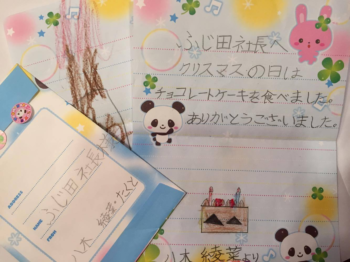 ふじ田社長へ
クリスマスの日は
チョコレートケーキを食べました。
ありがとうございました。
八木 綾菜より
ADDRESS
NAME
ふじ田社長
FROM
八木 綾菜・たくと